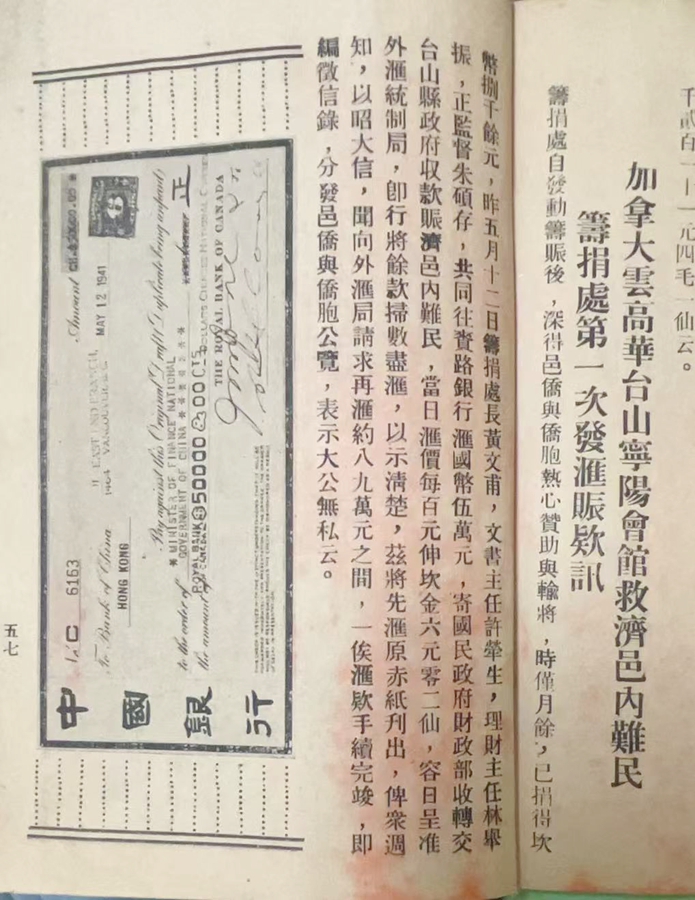 千貳百一十一元四毛一仙云。
加拿大雲高華台山寧陽會館救濟邑內難民
籌捐處第一次發滙賑欵訊
籌捐處自發動籌賑後，深得邑僑與僑胞熱心贊助與輸將，時僅月餘，已捐得坎
幣捌千餘元，昨五月十二日籌捐處長黃文甫，文書主任許犖生，理財主任林舉
振，正監督朱碩存，共同往賚路銀行滙國幣伍萬元，寄國民政府財政部收轉交
台山縣政府収款賑濟邑內難民，當日滙價每百元伸坎金六元零二仙，容日呈准
外滙統制局，卽行將餘款掃數盡滙，以示清楚，茲將先滙原赤紙刋出，俾衆週
知，以昭大信，聞向外滙局請求再滙約八九萬元之間，一俟滙欵手續完竣，卽
編徵信錄，分發邑僑與僑胞公覽，表示大公無私云。
中國銀行
6163
MAY 12 1941
Amount
To Bank of China
HONG KONG
Pay against this Original Draft
to the order of
MINISTER OF FINANCE NATIONAL
GOVERNMENT OF CHINA
the amount of
ROYAL BANK OF CANADA $50000 00 CTS
正
THE ROYAL BANK OF CANADA
五七